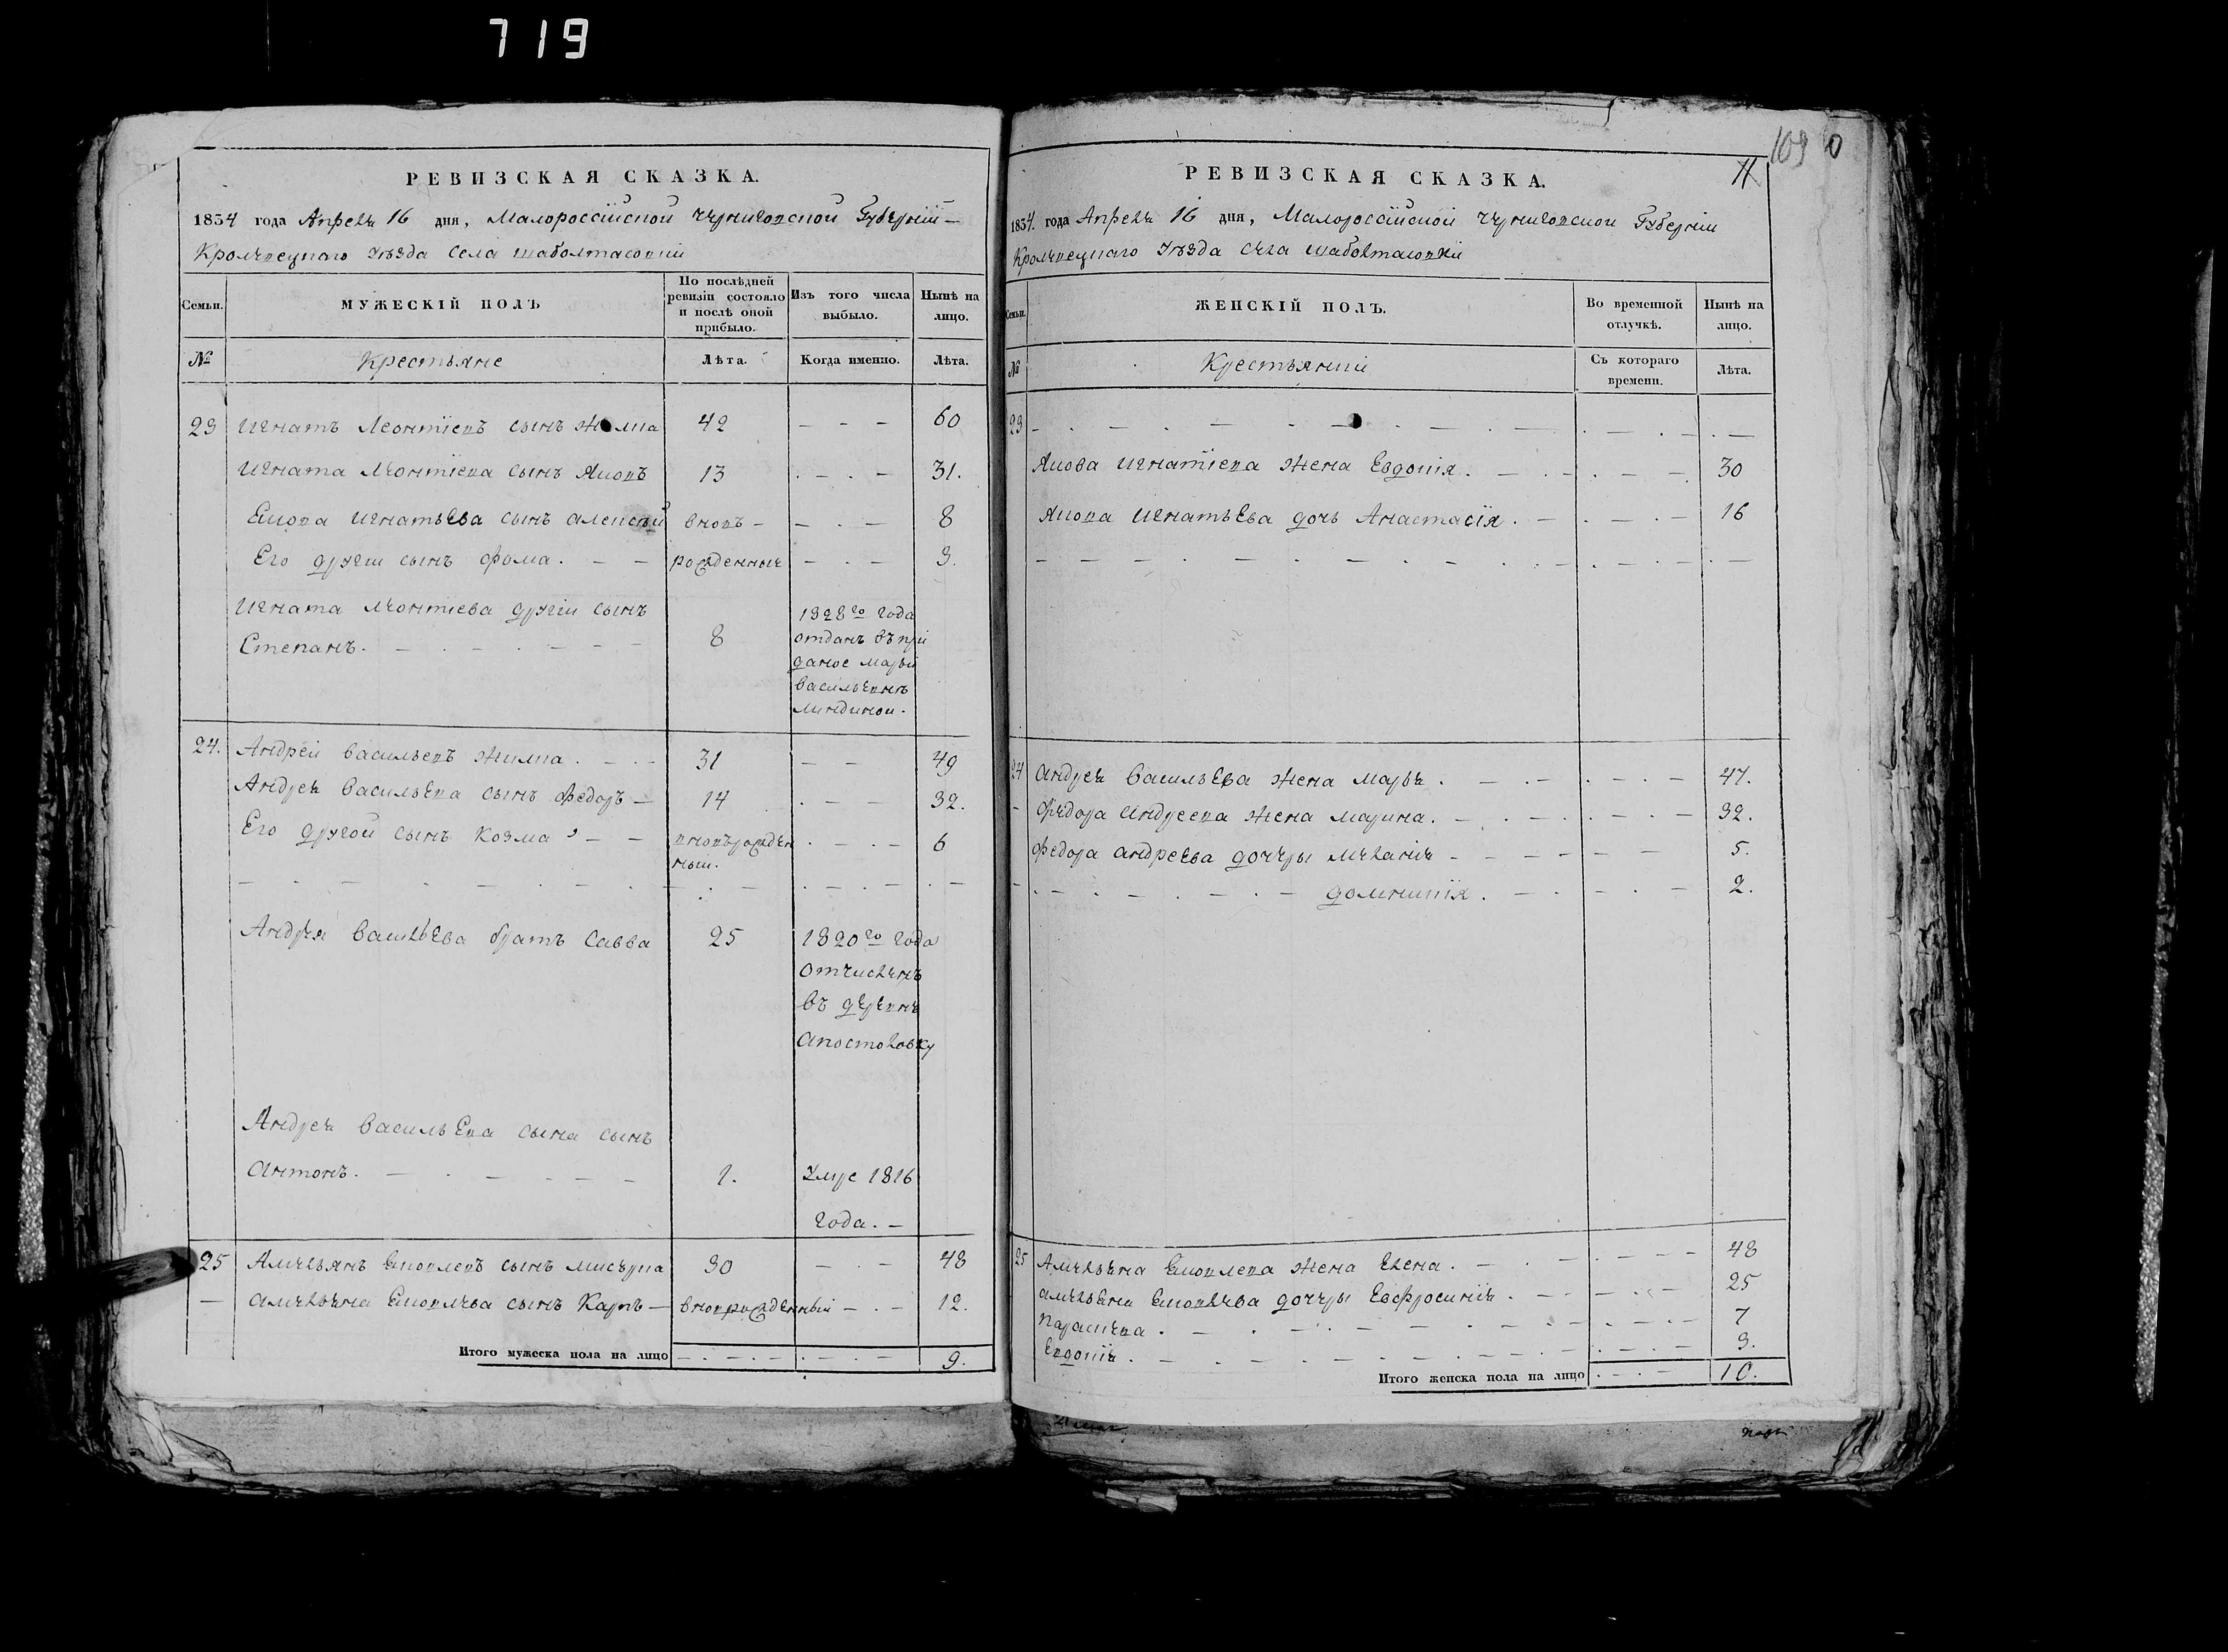 719
РЕВИЗСКАЯ СКАЗКА.
1834 года Апреля 16 дня, Малороссїйской Черниговской Губернїи —
Кролевецкаго Уѣзда Села шаболтасовки
Семьи.
МУЖЕСКІЙ ПОЛЪ
По послѣдней ревизіи состояло и послѣ оной прибыло.
Изъ того числа выбыло.
Нынѣ на лицо.
№
Крестьяне
Лѣта.
Когда именно.
Лѣта.
23 Игнатъ Леонтїевъ сынъ 42 — — — 60
Игната Леонтїева сынъ Яковъ 13 . — . — 31.
Якова Игнатьева сынъ алексѣй вновь — — . — 8
Его другїи сынъ фома. — — рожденные — . — 3.
Игната Леонтїева другїи сынъ
Степанъ. — . — . — — — 8
1828го года
отданъ въ при
даное марьи
васильевнѣ
Линдиной.
24. Андрей васильевъ жилка . — . — 31 — — 49
Андрея васильева сынъ федоръ — 14 . — — 32.
Его другой сынъ козма — — вновьрожден . — . — 6
ный.
Андрея васильева братъ савва 25
1820го года
отчисленъ
въ деревню
апостоловку
Андрея васильева сына сынъ
антонъ. — . — — — — 1.
Умре 1816
года. —
25 Амельянъ Яковлевъ сынъ мисюра 30 — . — 48
— амельяна Яковлева сынъ Карпъ — вноврожденный — . — 12.
Итого мужеска пола на лицо — . — . — . — . — 9.
109
11
РЕВИЗСКАЯ СКАЗКА.
1834. года Апреля 16 дня, Малороссїйской Черниговской Губернїи
Кролевецкаго Уѣзда села шаболтасовки
Семьи.
ЖЕНСКІЙ ПОЛЪ.
Во временной отлучкѣ.
Нынѣ на лицо.
№
Крестьянкїи
Съ котораго времени.
Лѣта.
23
Якова Игнатїева жена Евдокїя. — . — . — — 30
Якова Игнатьева дочь Анастасїя . — . — . — 16
24 андрея васильева жена марья . — . — . — . — 47.
— федора андреева жена марина. — . — . — . — 32.
федора андреева дочеры меланїя — — — — — — 5.
домникїя . — . — . — 2.
25 Амельяна Яковлева жена Елена . — . — . — — — 48
амельяна Яковлева дочеры Евфросинїя . — . — . — 25
параскева . — . — . — . — 7
Евдокїя . — . — . — . — 3.
Итого женска пола на лицо . — . — 10.